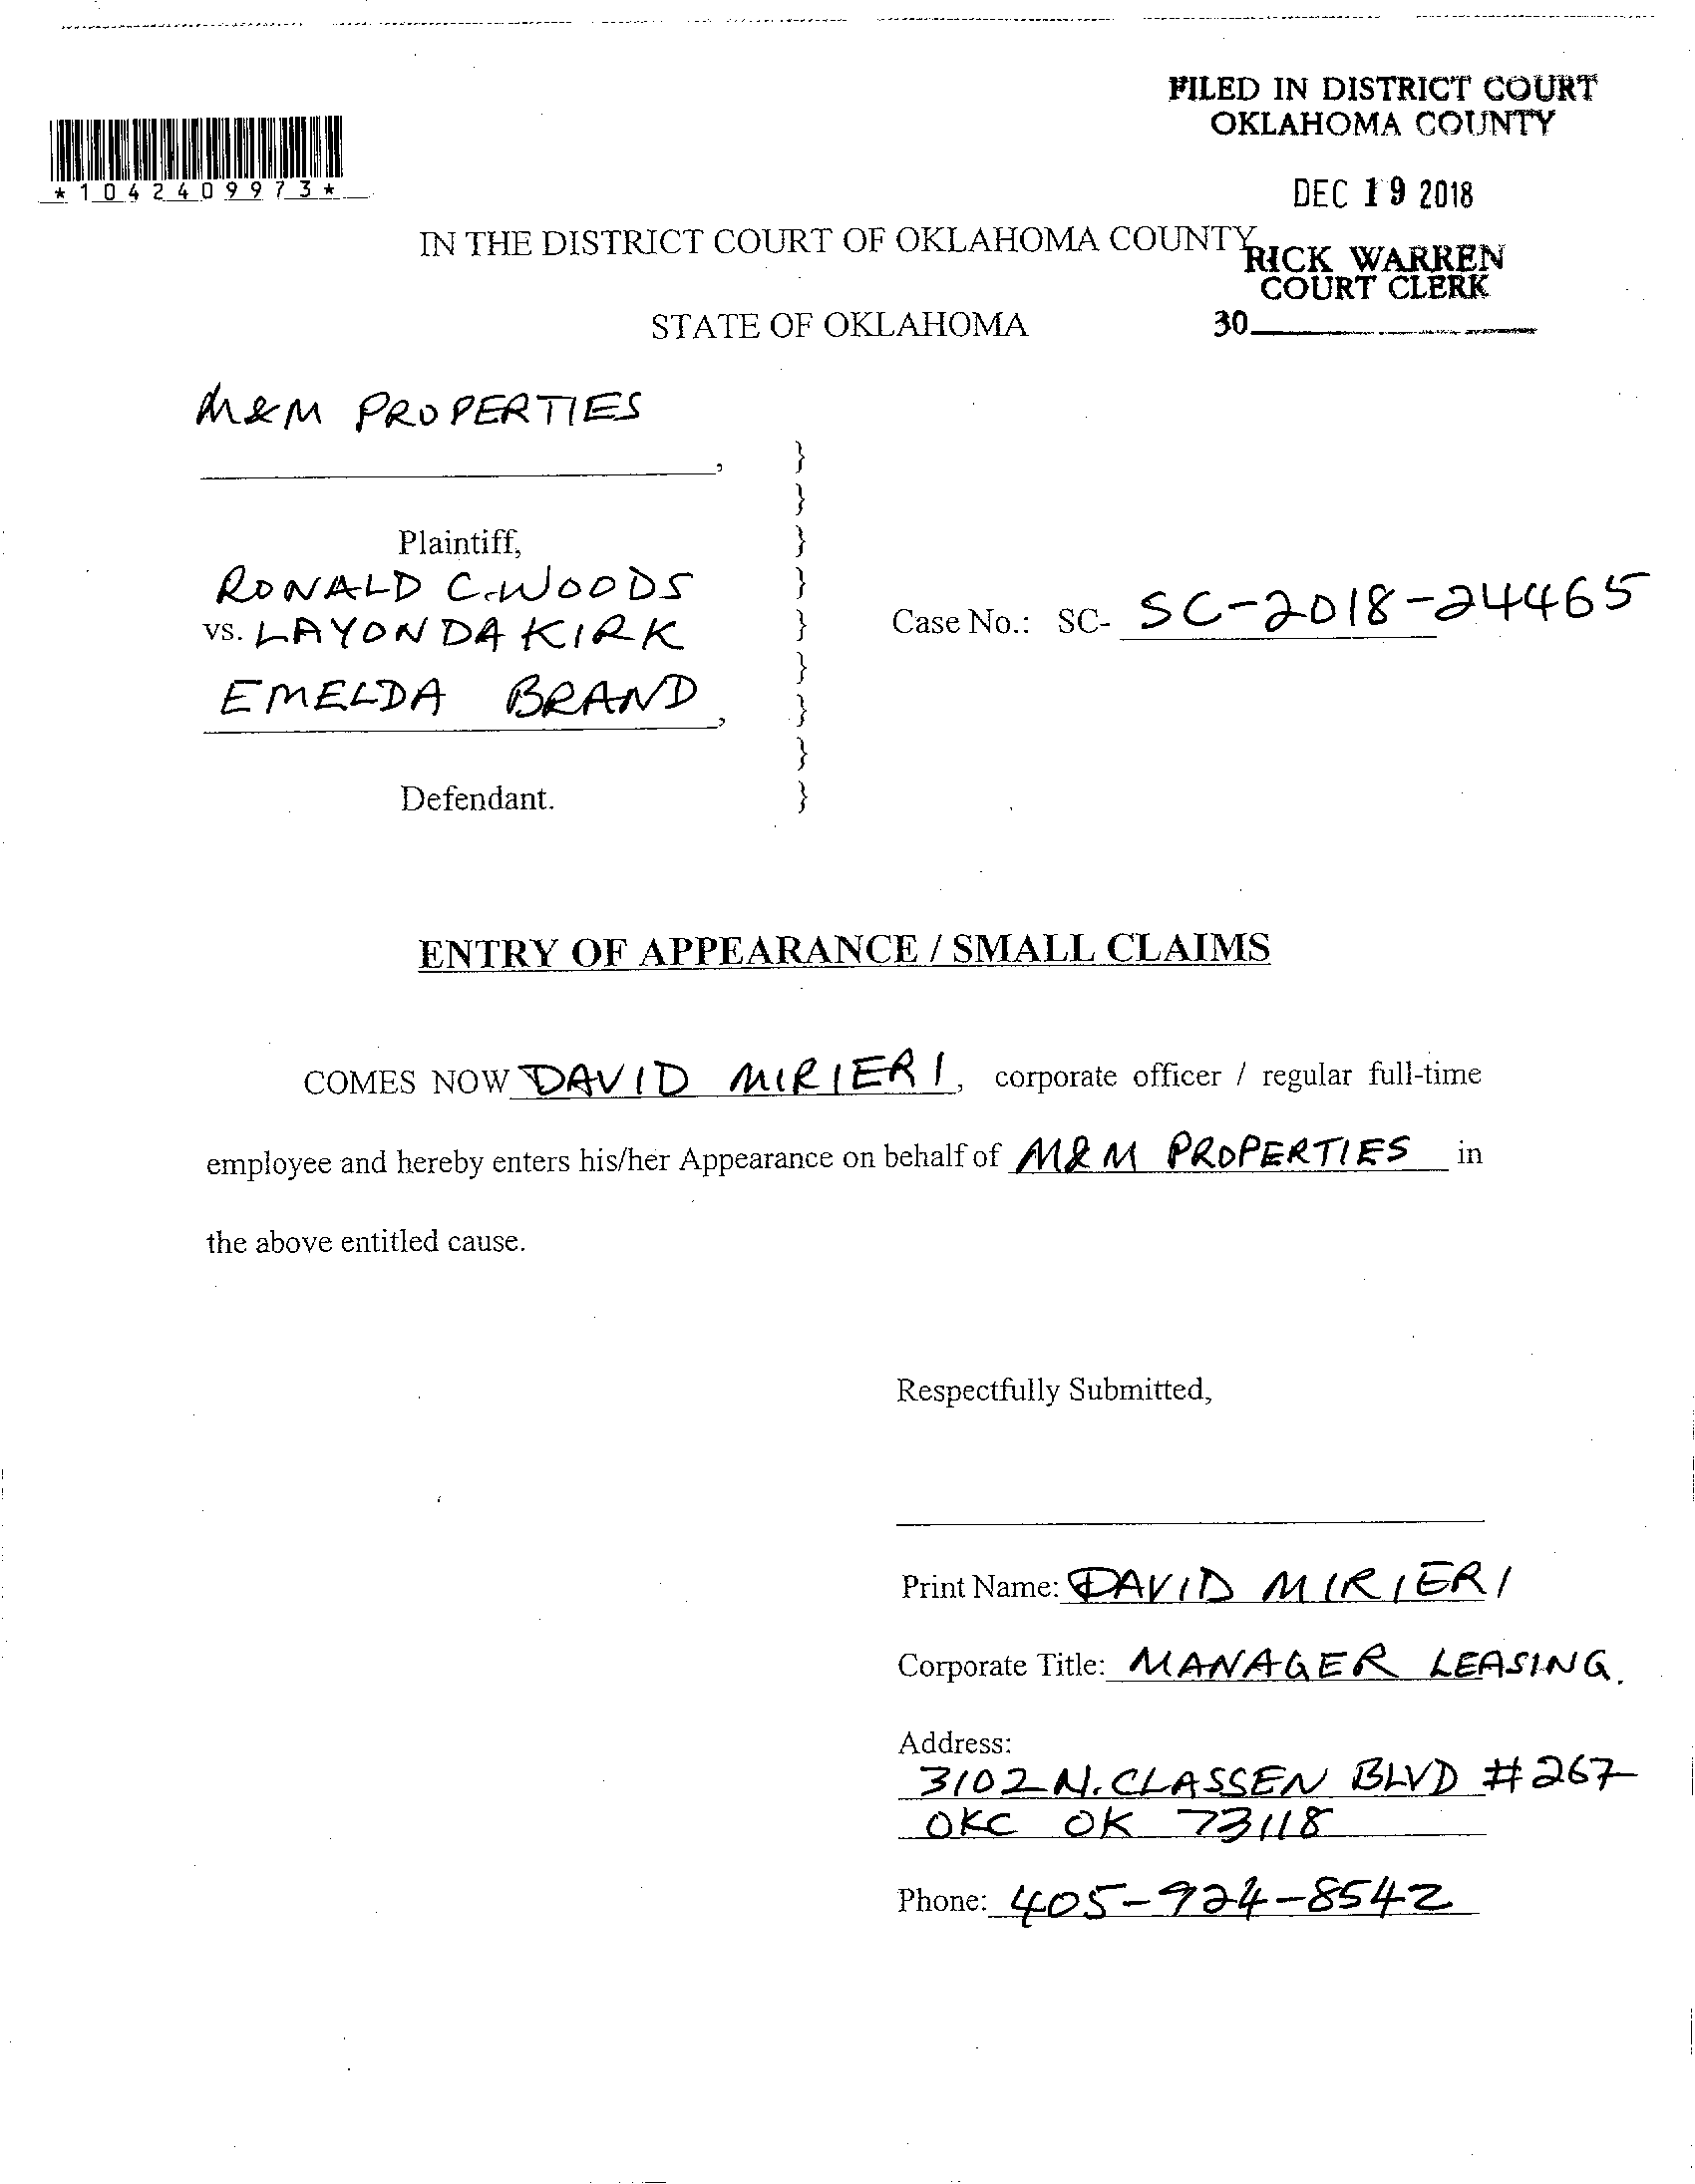 FILED IN DISTRICT COURT
OKLAHOMA COUNTY
*1042409973*
DEC 19 2018
IN THE DISTRICT COURT OF OKLAHOMA COUNTY
RICK WARREN
COURT CLERK
STATE OF OKLAHOMA
30
M&M PROPERTIES
,
}
}
Plaintiff, }
RONALD C. WOODS }
vs. LAYONDA KIRK } Case No.: SC- SC-2018-24465
}
EMELDA BRAND, }
}
Defendant. }
ENTRY OF APPEARANCE / SMALL CLAIMS
COMES NOW DAVID MIRIERI, corporate officer / regular full-time
employee and hereby enters his/her Appearance on behalf of M&M PROPERTIES in
the above entitled cause.
Respectfully Submitted,
Print Name: DAVID MIRIERI
Corporate Title: MANAGER LEASING.
Address:
3102 N. CLASSEN BLVD #267
OKC OK 73118
Phone: 405-924-8542